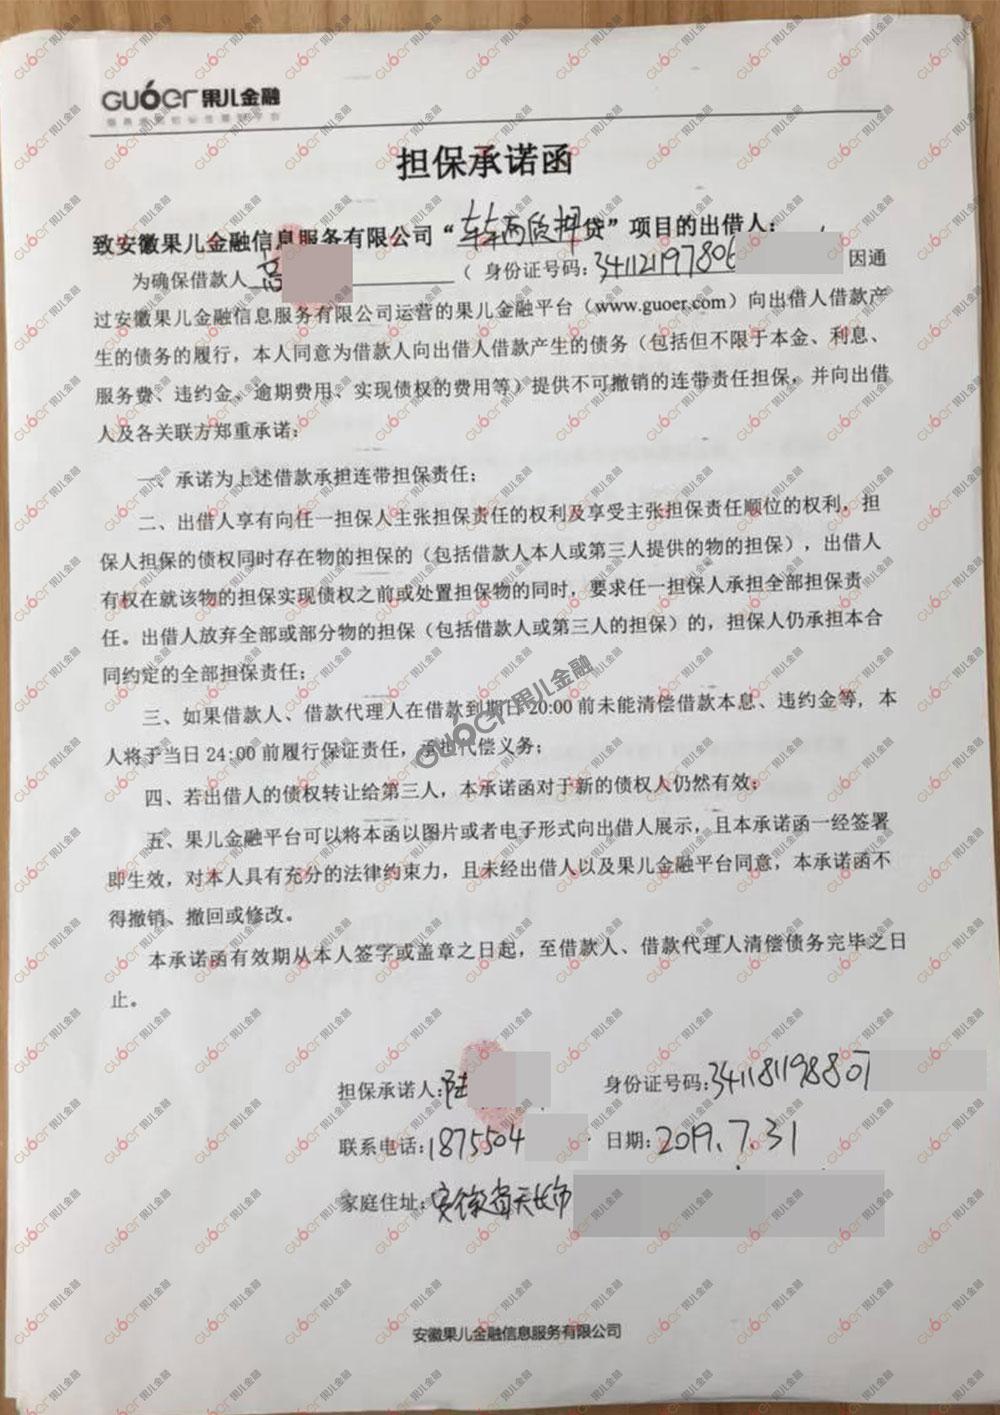 GUOEr 果儿金融
担保承诺函
致安徽果儿金融信息服务有限公司“车辆质押贷”项目的出借人：
为确保借款人 高 （ 身份证号码：341121197806 因通
过安徽果儿金融信息服务有限公司运营的果儿金融平台（www.guoer.com）向出借人借款产
生的债务的履行，本人同意为借款人向出借人借款产生的债务（包括但不限于本金、利息、
服务费、违约金、逾期费用、实现债权的费用等）提供不可撤销的连带责任担保，并向出借
人及各关联方郑重承诺：
一、承诺为上述借款承担连带担保责任；
二、出借人享有向任一担保人主张担保责任的权利及享受主张担保责任顺位的权利，担
保人担保的债权同时存在物的担保的（包括借款人本人或第三人提供的物的担保），出借人
有权在就该物的担保实现债权之前或处置担保物的同时，要求任一担保人承担全部担保责
任。出借人放弃全部或部分物的担保（包括借款人或第三人的担保）的，担保人仍承担本合
同约定的全部担保责任；
三、如果借款人、借款代理人在借款到期日 20:00 前未能清偿借款本息、违约金等，本
人将于当日 24:00 前履行保证责任，承担代偿义务；
四、若出借人的债权转让给第三人，本承诺函对于新的债权人仍然有效；
五、果儿金融平台可以将本函以图片或者电子形式向出借人展示，且本承诺函一经签署
即生效，对本人具有充分的法律约束力，且未经出借人以及果儿金融平台同意，本承诺函不
得撤销、撤回或修改。
本承诺函有效期从本人签字或盖章之日起，至借款人、借款代理人清偿债务完毕之日
止。
担保承诺人：陆 身份证号码：341181198807
联系电话：1875504 日期：2019.7.31
家庭住址：安徽省天长市
安徽果儿金融信息服务有限公司